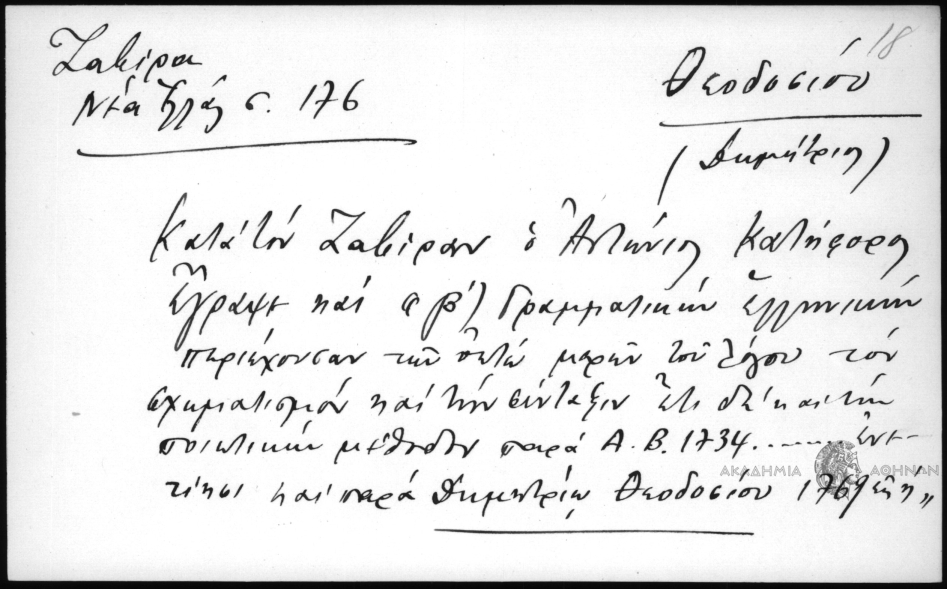 18
Ζαβίρα
Νέα Ἑλλάς σ. 176
Θεοδοσίου
(Δημήτριος)
Κατὰ τὸν Ζαβίραν ὁ Ἀντώνιος Κατήφορος
ἔγραψε καὶ "β') Γραμματικὴν Ἑλληνικὴν
περιέχουσαν τῶν ὀκτὼ μερῶν τοῦ λόγου τὸν
σχηματισμὸν καὶ τὴν σύνταξιν ἔτι δὲ καὶ τὴν
ποιητικὴν μέθοδον παρὰ Α. Β. 1734. ........ Ἐνε-
τίησι καὶ παρὰ Δημητρίῳ Θεοδοσίου 1769 εἰς η"
ΑΚΑΔΗΜΙΑ ΑΘΗΝΩΝ